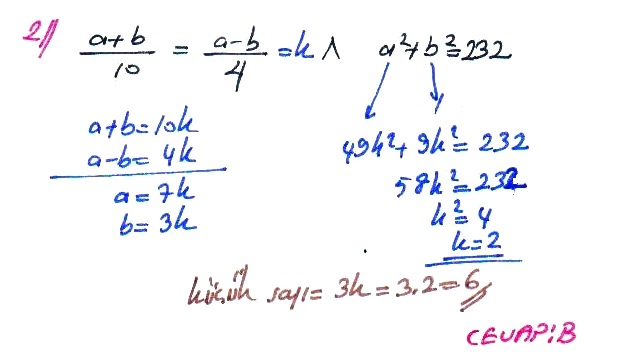 2// (a+b)/10 = (a-b)/4 = k ∧ a²+b²=232
a+b=10k
a-b=4k
a=7k
b=3k
49k²+9k²=232
58k²=232
k²=4
k=2
küçük sayı= 3k = 3.2 = 6//
CEVAP:B